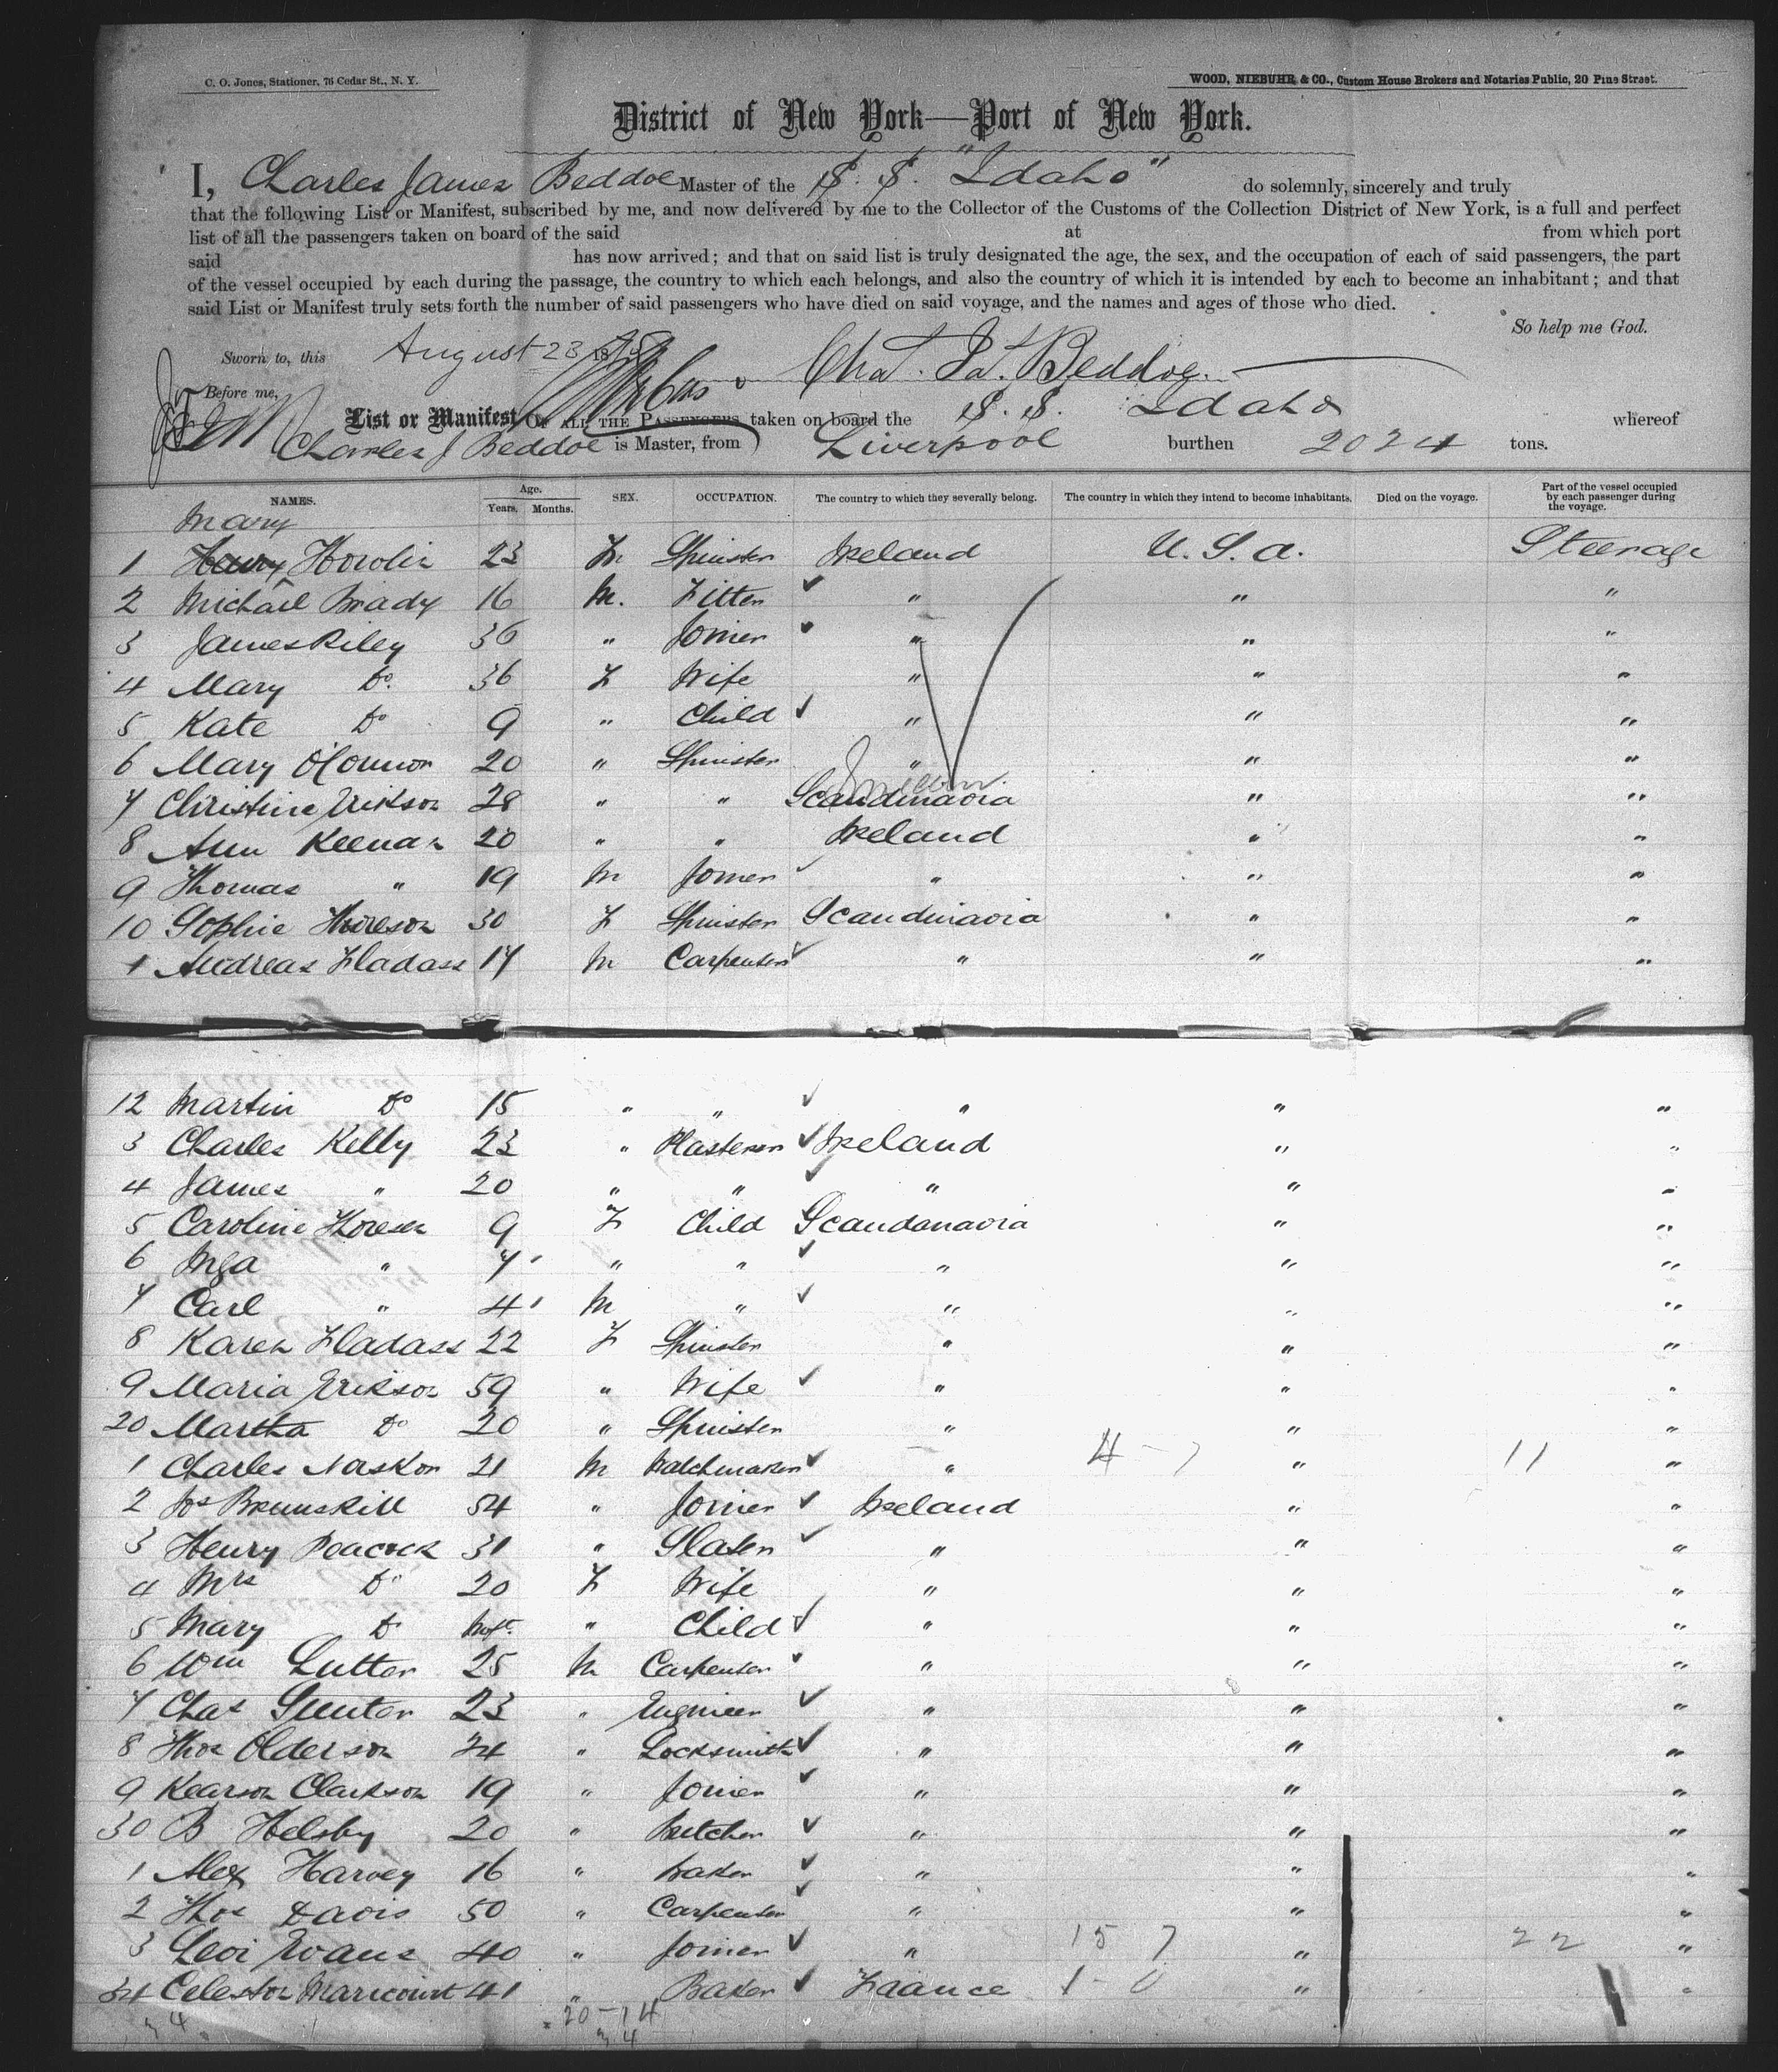 C. O. Jones, Stationer, 76 Cedar St., N. Y.
WOOD, NIEBUHR & CO., Custom House Brokers and Notaries Public, 20 Pine Street.
District of New York—Port of New York.
I, Charles James Beddoe Master of the S. S. "Idaho" do solemnly, sincerely and truly
that the following List or Manifest, subscribed by me, and now delivered by me to the Collector of the Customs of the Collection District of New York, is a full and perfect
list of all the passengers taken on board of the said at from which port
said has now arrived; and that on said list is truly designated the age, the sex, and the occupation of each of said passengers, the part
of the vessel occupied by each during the passage, the country to which each belongs, and also the country of which it is intended by each to become an inhabitant; and that
said List or Manifest truly sets forth the number of said passengers who have died on said voyage, and the names and ages of those who died.
So help me God.
Sworn to, this August 23 18
Chas. Js. Beddoe
Before me,
List or Manifest OF ALL THE PASSENGERS taken on board the S. S. Idaho whereof
Charles J Beddoe is Master, from Liverpool burthen 2024 tons.
NAMES. Age. Years. Months. SEX. OCCUPATION. The country to which they severally belong. The country in which they intend to become inhabitants. Died on the voyage. Part of the vessel occupied by each passenger during the voyage.
Mary
1 Howlin 23 Spinster Ireland U. S. a. Steerage
2 Michael Brady 16 M. Fitter " " "
3 James Riley 36 " Joiner " " "
4 Mary Do. 36 F Wife " " "
5 Kate Do 9 " Child " " "
6 Mary O'Connor 20 " Spinster " " "
7 Christine Erikson 28 " " Scandinavia " "
8 Ann Keenan 20 " " Ireland " "
9 Thomas " 19 M Joiner " " "
10 Sophie Thoreson 30 F Spinster Scandinavia " "
1 Andreas Fladass 17 M Carpenter " " "
12 Martin Do 15 " " " " "
3 Charles Kelly 23 " Plasterer Ireland " "
4 James " 20 " " " " "
5 Caroline Thoresen 9 F Child Scandanavia " "
6 Inga " 7 " " " " "
7 Carl " 4 M " " " "
8 Karen Fladass 22 F Spinster " " "
9 Maria Erikson 59 " Wife " " "
20 Martha Do 20 " Spinster " " "
1 Charles Norskon 21 M Watchmaker " 4 - 7 " 11 "
2 Jos Brunskill 54 " Joiner Ireland " "
3 Henry Peacock 31 " Slater " " "
4 Mrs Do 20 F Wife " " "
5 Mary Do Inft. " Child " " "
6 Wm Lutter 25 M Carpenter " " "
7 Chas Gunter 23 " Engineer " " "
8 Thos Olderson 24 " Locksmith " " "
9 Kearson Clarkson 19 " Joiner " " "
30 B Helsby 20 " Butcher " " "
1 Alex Harvey 16 " Baker " " "
2 Thos Davis 50 " Carpenter " " "
3 Levi Evans 40 " Joiner " 15 7 " 22 "
34 Celestor Maricourt 41 " Baker Fraance 1 - 0 " "
20 - 14